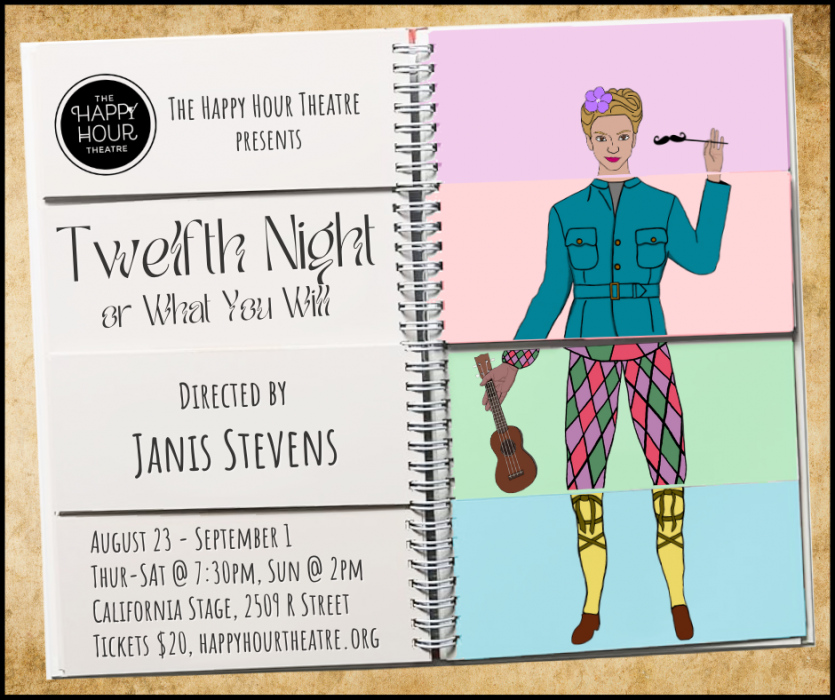 THE
HAPPY
HOUR
THEATRE
The Happy Hour Theatre
presents
Twelfth Night
or What You Will
Directed by
Janis Stevens
August 23 - September 1
Thur-Sat @ 7:30pm, Sun @ 2pm
California Stage, 2509 R Street
Tickets $20, happyhourtheatre.org